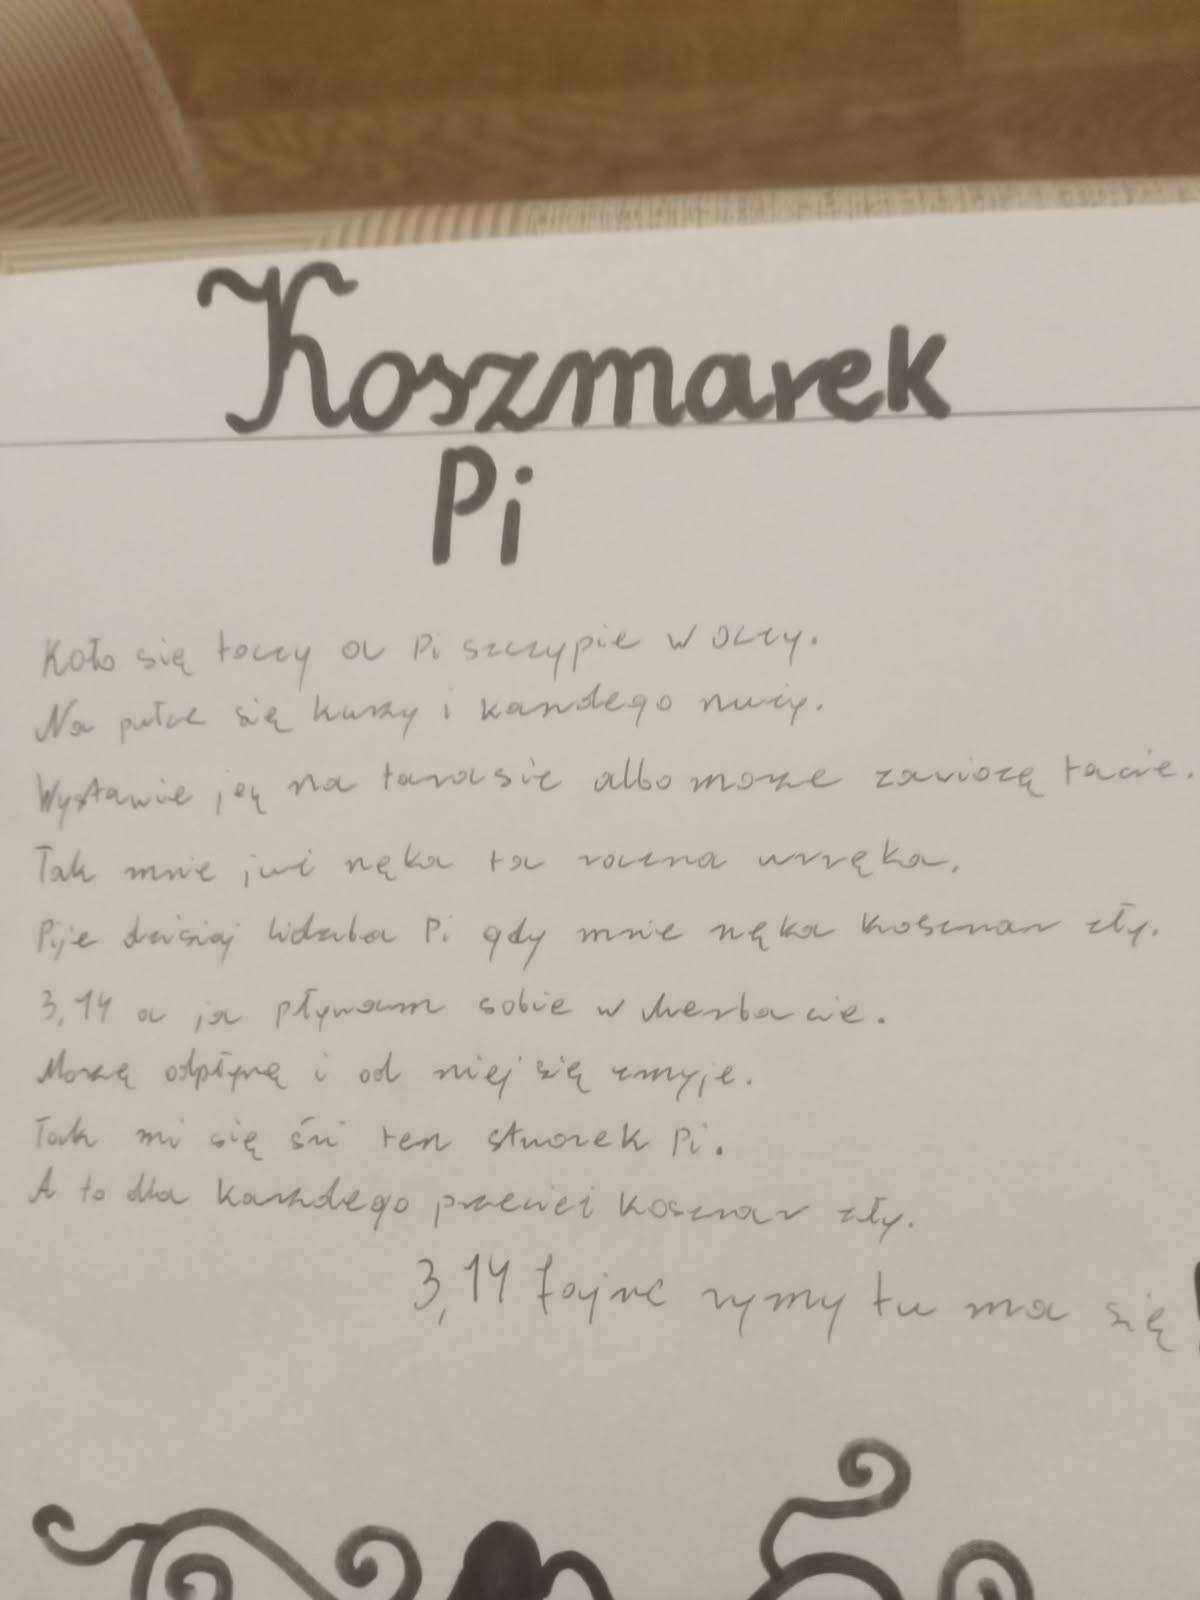 Koszmarek
Pi
Koło się toczy a Pi szczypie w oczy.
Na pułce się kurzy i karzdego nuży.
Wystawie ją na tarasie albo morze zawiozę tacie.
Tak mnie już nęka ta roczna urzęka.
Pije dzisiaj lidzba Pi gdy mnie nęka koszmar zły.
3,14 a ja pływam sobie w cherbacie.
Morzę odpłynę i od niej się zmyje.
Tak mi się śni ten stworek Pi.
A to dla karzdego przecież koszmar zły.
3,14 fajne rymy tu ma się!